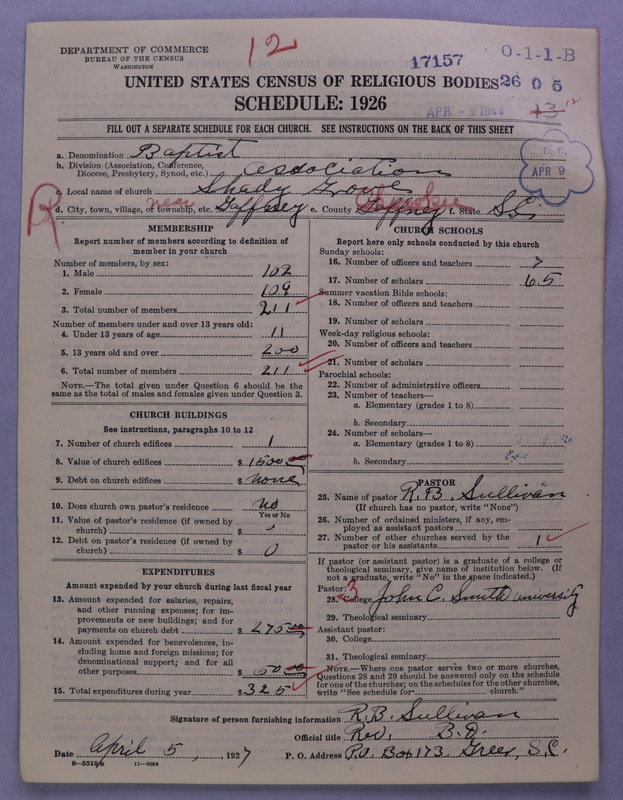 DEPARTMENT OF COMMERCE
BUREAU OF THE CENSUS
WASHINGTON
12
17157
O-1-1-B
UNITED STATES CENSUS OF RELIGIOUS BODIES
26 0 5
SCHEDULE: 1926
APR - 9 Rec'd
13
FILL OUT A SEPARATE SCHEDULE FOR EACH CHURCH. SEE INSTRUCTIONS ON THE BACK OF THIS SHEET
APR 9
a. Denomination Baptist
b. Division (Association, Conference, Diocese, Presbytery, Synod, etc.) Association
c. Local name of church Shady Grove
R
d. City, town, village, or township, etc. near Gaffney e. County Gaffney Cherokee f. State S.C.
MEMBERSHIP
Report number of members according to definition of
member in your church
Number of members, by sex:
1. Male 102
2. Female 109
3. Total number of members 211
Number of members under and over 13 years old:
4. Under 13 years of age 11
5. 13 years old and over 200
6. Total number of members 211
NOTE.—The total given under Question 6 should be
same as the total of males and females given under Question 3.
CHURCH BUILDINGS
See instructions, paragraphs 10 to 12
7. Number of church edifices 1
8. Value of church edifices $ 1500.00
9. Debt on church edifices $ none
10. Does church own pastor's residence no
Yes or No
11. Value of pastor's residence (if owned by
church) $ 0
12. Debt on pastor's residence (if owned by
church) $ 0
EXPENDITURES
Amount expended by your church during last fiscal year
13. Amount expended for salaries, repairs,
and other running expenses; for im-
provements or new buildings; and for
payments on church debt $ 275.00
14. Amount expended for benevolences, in-
cluding home and foreign missions; for
denominational support; and for all
other purposes $ 50.00
15. Total expenditures during year $ 325
CHURCH SCHOOLS
Report here only schools conducted by this church
Sunday schools:
16. Number of officers and teachers 7
17. Number of scholars 65
Summer vacation Bible schools:
18. Number of officers and teachers
19. Number of scholars
Week-day religious schools:
20. Number of officers and teachers
21. Number of scholars
Parochial schools:
22. Number of administrative officers
23. Number of teachers—
a. Elementary (grades 1 to 8)
b. Secondary
24. Number of scholars—
a. Elementary (grades 1 to 8)
b. Secondary
PASTOR
25. Name of pastor R. B. Sullivan
(If church has no pastor, write "None")
26. Number of ordained ministers, if any, em-
ployed as assistant pastors
27. Number of other churches served by the
pastor or his assistants 1
If pastor (or assistant pastor) is a graduate of a college or
theological seminary, give name of institution below. (If
not a graduate, write "No" in the space indicated.)
Pastor: 3
28. College John C. Smith university
29. Theological seminary
Assistant pastor:
30. College
31. Theological seminary
NOTE.—Where one pastor serves two or more churches,
Questions 28 and 29 should be answered only on the schedule
for one of the churches; on the schedules for the other churches,
write "See schedule for church."
Signature of person furnishing information R.B. Sullivan
Official title Rev, B.D.
Date April 5, 1927
P. O. Address P.O. Box 173, Greer, S.C.
8—5518a 11—9084